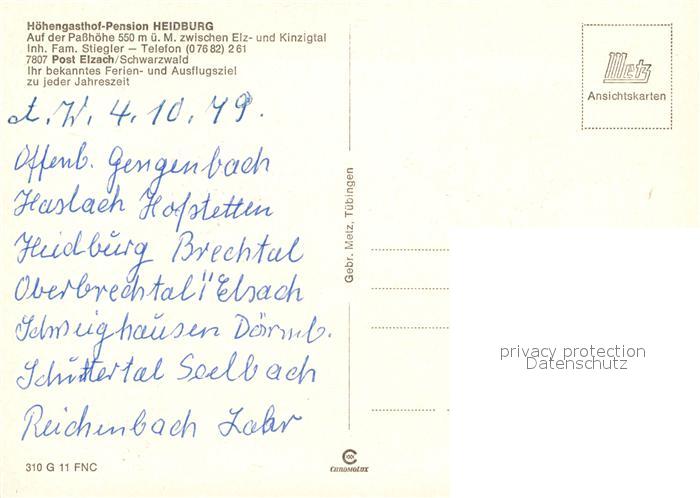 Höhengasthof-Pension HEIDBURG
Auf der Paßhöhe 550 m ü. M. zwischen Elz- und Kinzigtal
Inh. Fam. Stiegler – Telefon (0 76 82) 2 61
7807 Post Elzach/Schwarzwald
Ihr bekanntes Ferien- und Ausflugsziel
zu jeder Jahreszeit
4. 10. 79.
Offenb. Gengenbach
Haslach Hofstetten
Heidburg Brechtal
Oberbrechtal Elsach
Schweighausen Dörrnb.
Schuttertal Seelbach
Reichenbach Lahr
310 G 11 FNC
Gebr. Metz, Tübingen
CHROMOLUX
Metz
Ansichtskarten
privacy protection
Datenschutz